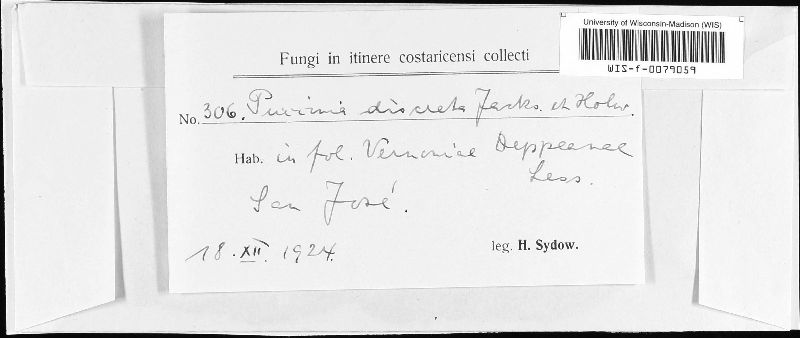 University of Wisconsin-Madison (WIS)
WIS-f-0079059
Fungi in itinere costaricensi collecti
No. 306. Puccinia discreta Jacks. et Holw.
Hab. in fol. Vernoniae Deppeanae
Less.
San José.
18. XII. 1924.
leg. H. Sydow.